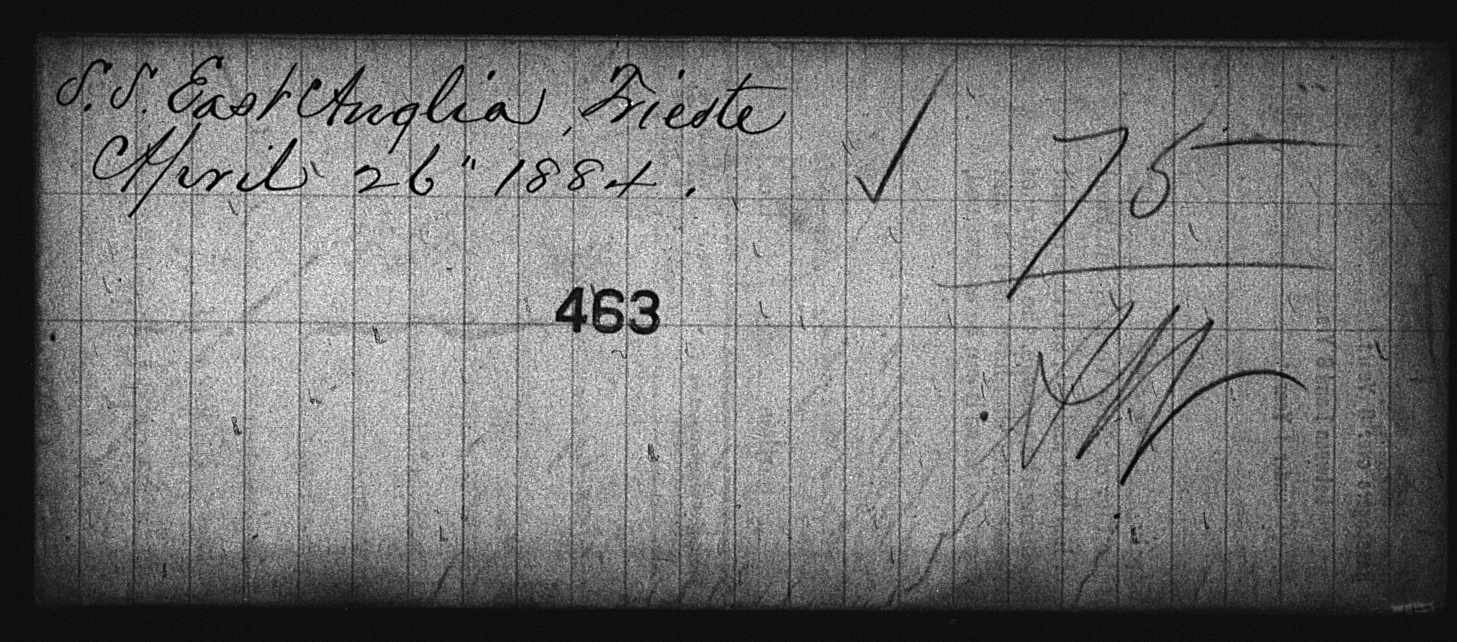 S.S. East Anglia, Trieste
April 26" 1884.
✓
75
463